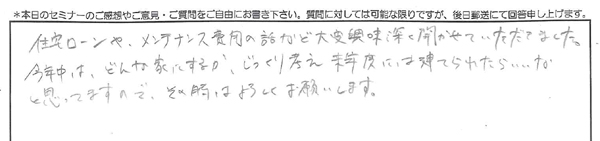 *本日のセミナーのご感想やご意見・ご質問をご自由にお書き下さい。質問に対しては可能な限りですが、後日郵送にて回答申し上げます。
住宅ローンや、メンテナンス費用の話など大変興味深く聞かせていただきました。
今年中は、どんな家にするか、じっくり考え来年度には建てられたらいいな
と思ってますので、その時はよろしくお願いします。